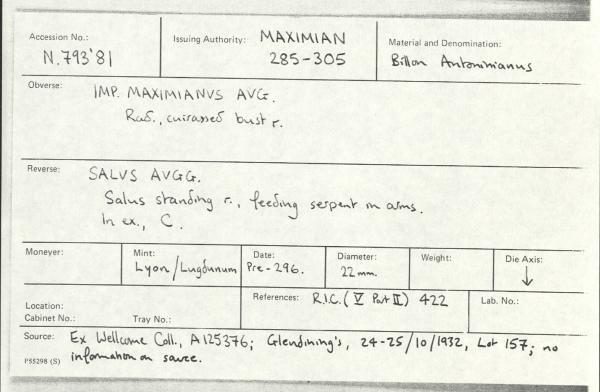 Accession No.: Issuing Authority: MAXIMIAN Material and Denomination:
N.793'81 285-305 Billon Antoninianus
Obverse: IMP. MAXIMIANVS AVG.
Rad., cuirassed bust r.
Reverse: SALVS AVGG.
Salus standing r., feeding serpent in arms.
In ex., C.
Moneyer: Mint: Date: Diameter: Weight: Die Axis:
Lyon/Lugdunum Pre-296. 22mm. ↓
Location: References: R.I.C. (V Part II) 422 Lab. No.:
Cabinet No.: Tray No.:
Source: Ex Wellcome Coll., A125376; Glendining's, 24-25/10/1932, Lot 157; no
P55298 (S) information on source.